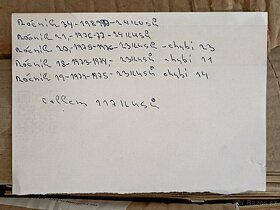 Ročník 34-1989-24 kusů
Ročník 21,-1976-77-24 kusů
Ročník 20,-1975-1976-23 kusů-chybí 23
Ročník 18-1973-1974,-23 kusů chybí 11
Ročník 19-1974-1975-23 kusů chybí 14
Celkem 117 kusů